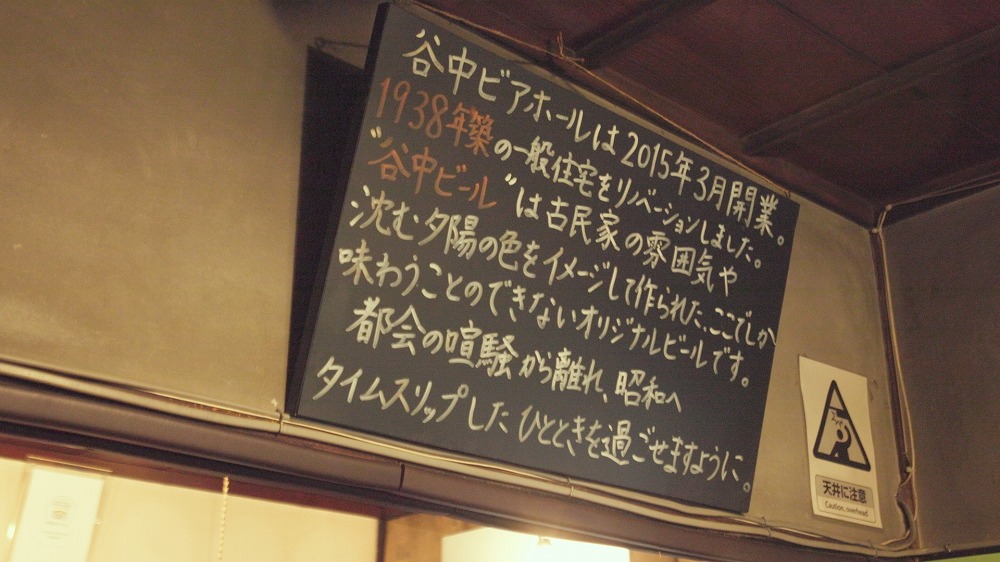 谷中ビアホールは2015年3月開業。
1938年築の一般住宅をリノベーションしました。
"谷中ビール"は古民家の雰囲気や
沈む夕陽の色をイメージして作られた、ここでしか
味わうことのできないオリジナルビールです。
都会の喧騒から離れ、昭和へ
タイムスリップしたひとときを過ごせますように。
天井に注意
Caution, overhead